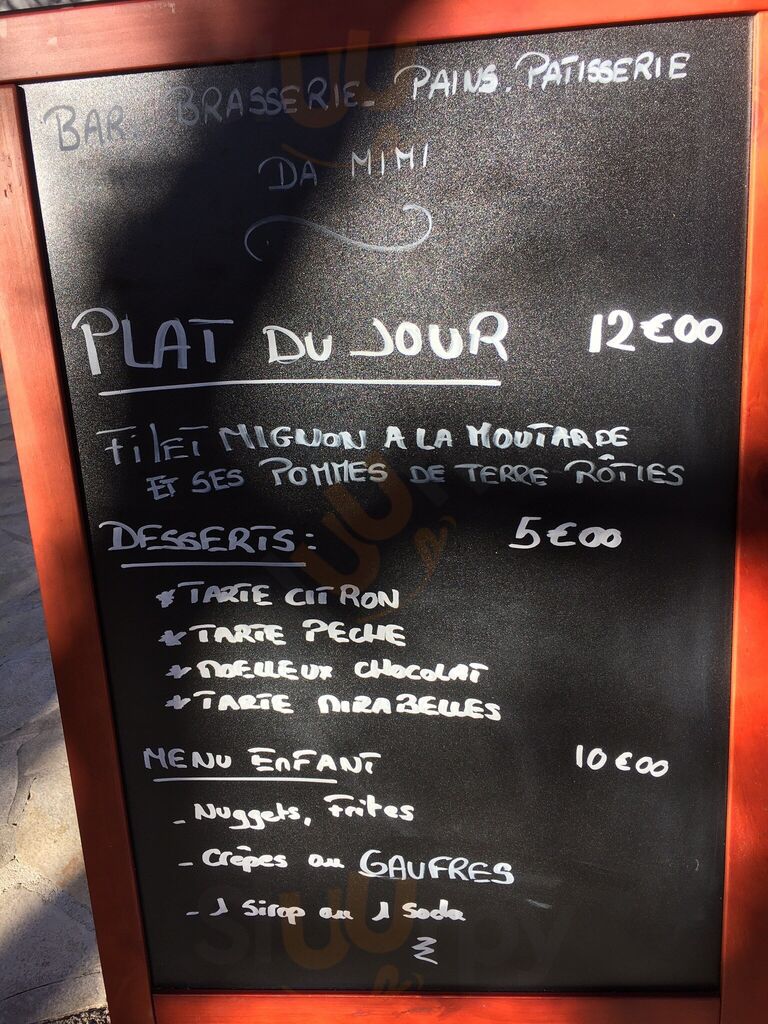 BAR. BRASSERIE_ PAINS. PATISSERIE
DA MIMI
PLAT DU JOUR 12€00
FilET MIGNON A LA MOUTARDE
ET SES POMMES DE TERRE RÔTIES
DESSERTS: 5€00
* TARTE CITRON
* TARTE PECHE
* MOELLEUX CHOCOLAT
* TARTE MIRABELLES
MENU EnFANT 10€00
- Nuggets, Frites
- Crêpes ou GAUFRES
- 1 Sirop ou 1 Soda